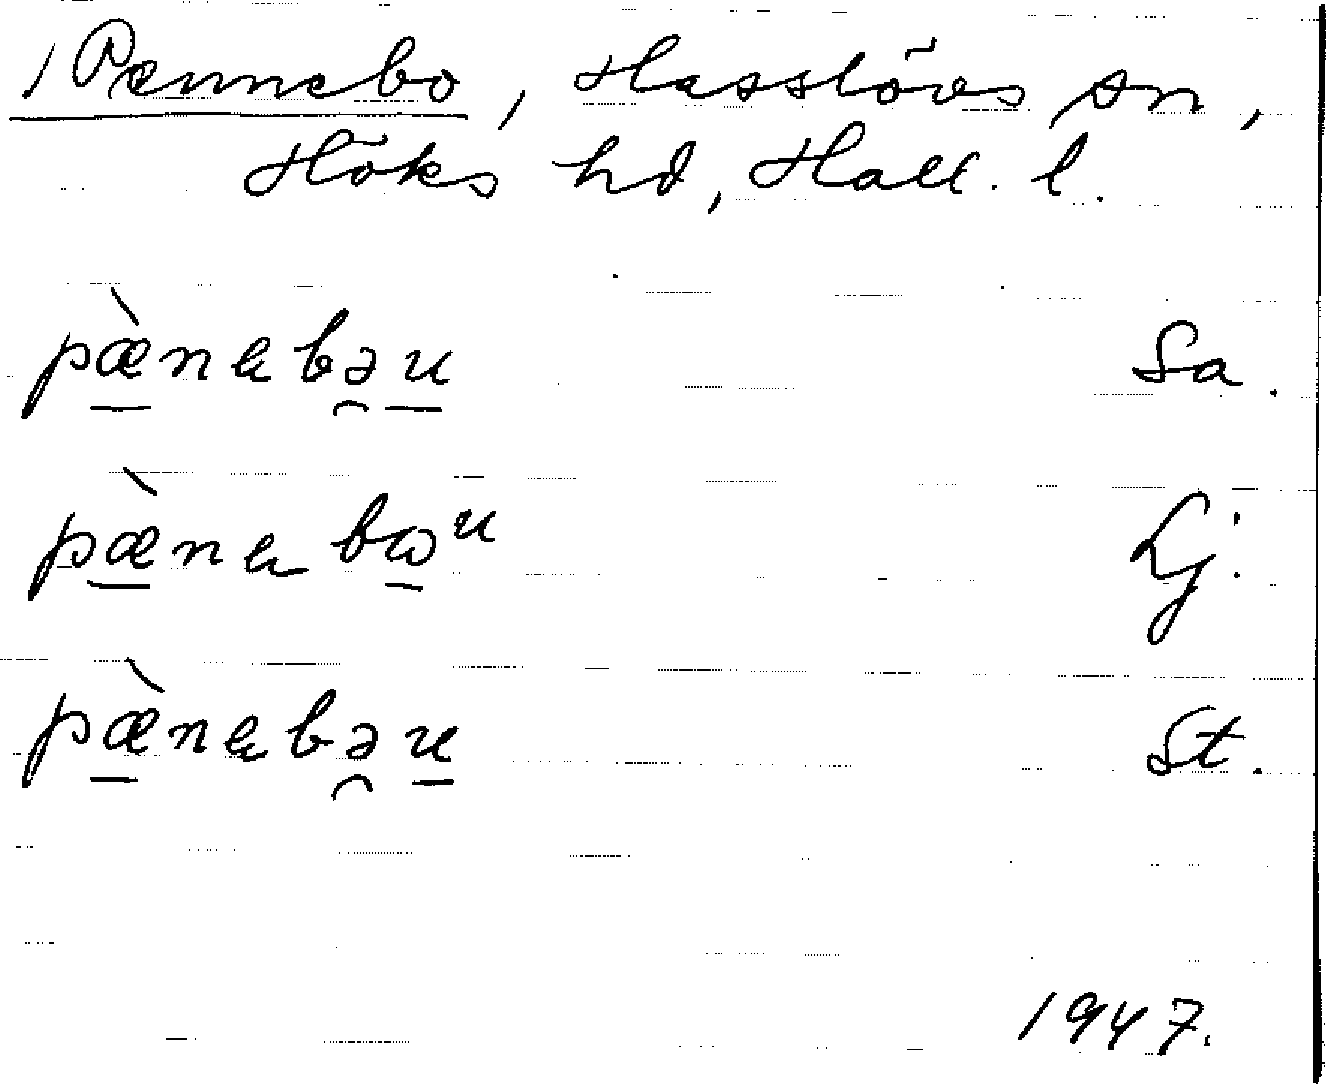 1 Pennebo, Hasslövs sn,
Höks hd, Hall. l.
pæ̀nebəu Sa.
pæ̀nebωᵘ Lj.
pæ̀nebəu St.
1947.